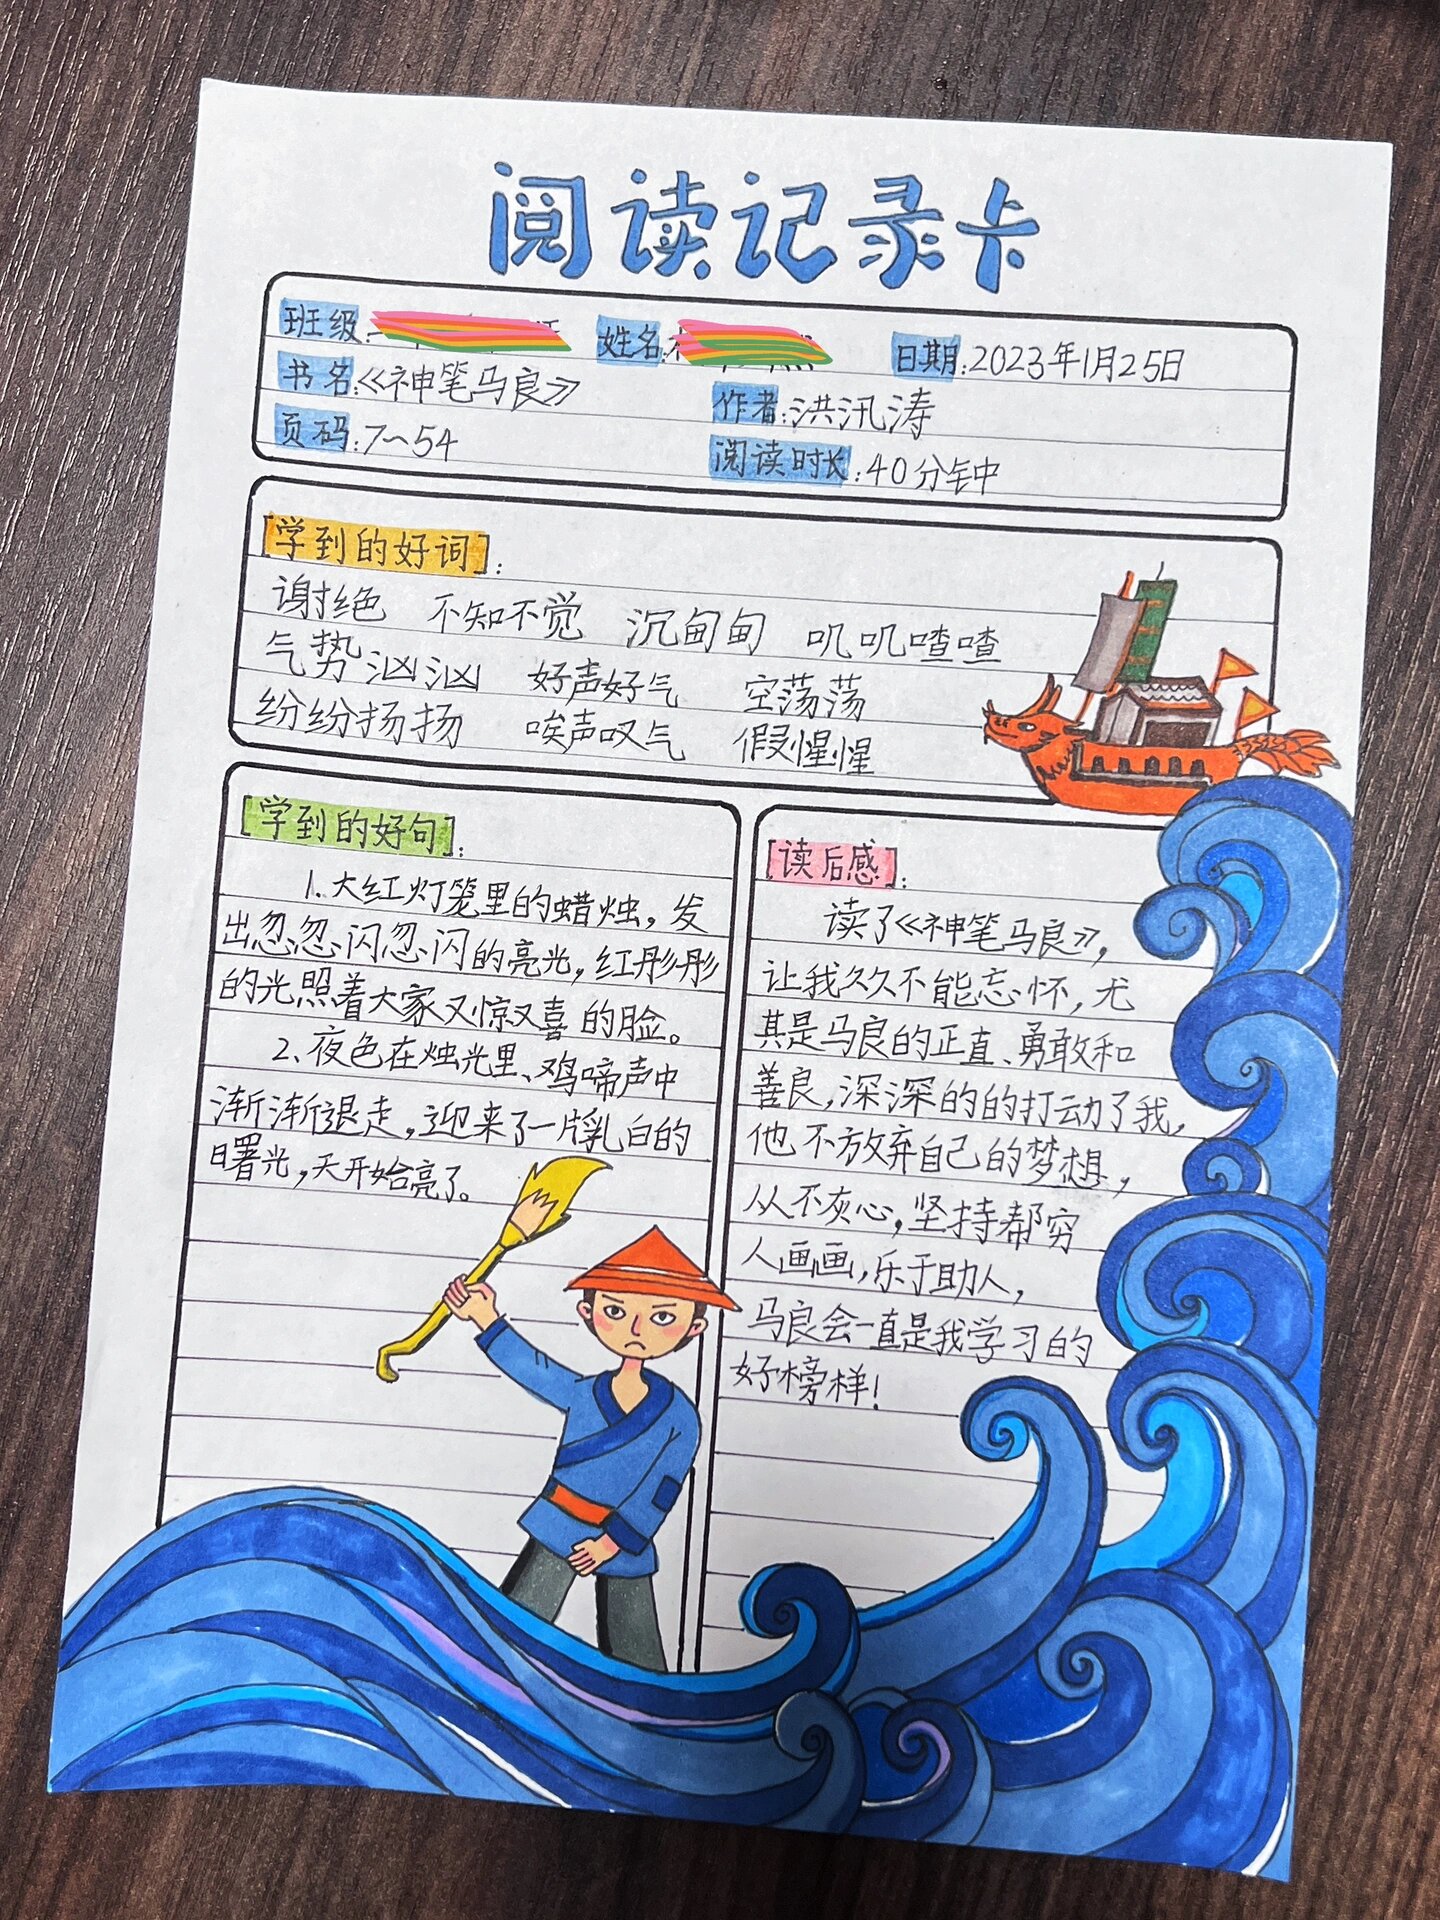 阅读记录卡
班级: 姓名: 日期:2023年1月25日
书名:《神笔马良》 作者:洪汛涛
页码:7~54 阅读时长:40分钟
[学到的好词]:
谢绝 不知不觉 沉甸甸 叽叽喳喳
气势汹汹 好声好气 空荡荡
纷纷扬扬 唉声叹气 假惺惺
[学到的好句]:
1.大红灯笼里的蜡烛,发
出忽忽闪忽闪的亮光,红彤彤
的光照着大家又惊又喜的脸。
2、夜色在烛光里、鸡啼声中
渐渐退走,迎来了一片乳白的
曙光,天开始亮了。
[读后感]:
读了《神笔马良》,
让我久久不能忘怀,尤
其是马良的正直、勇敢和
善良,深深的的打动了我,
他不放弃自己的梦想,
从不灰心,坚持帮穷
人画画,乐于助人,
马良会一直是我学习的
好榜样!